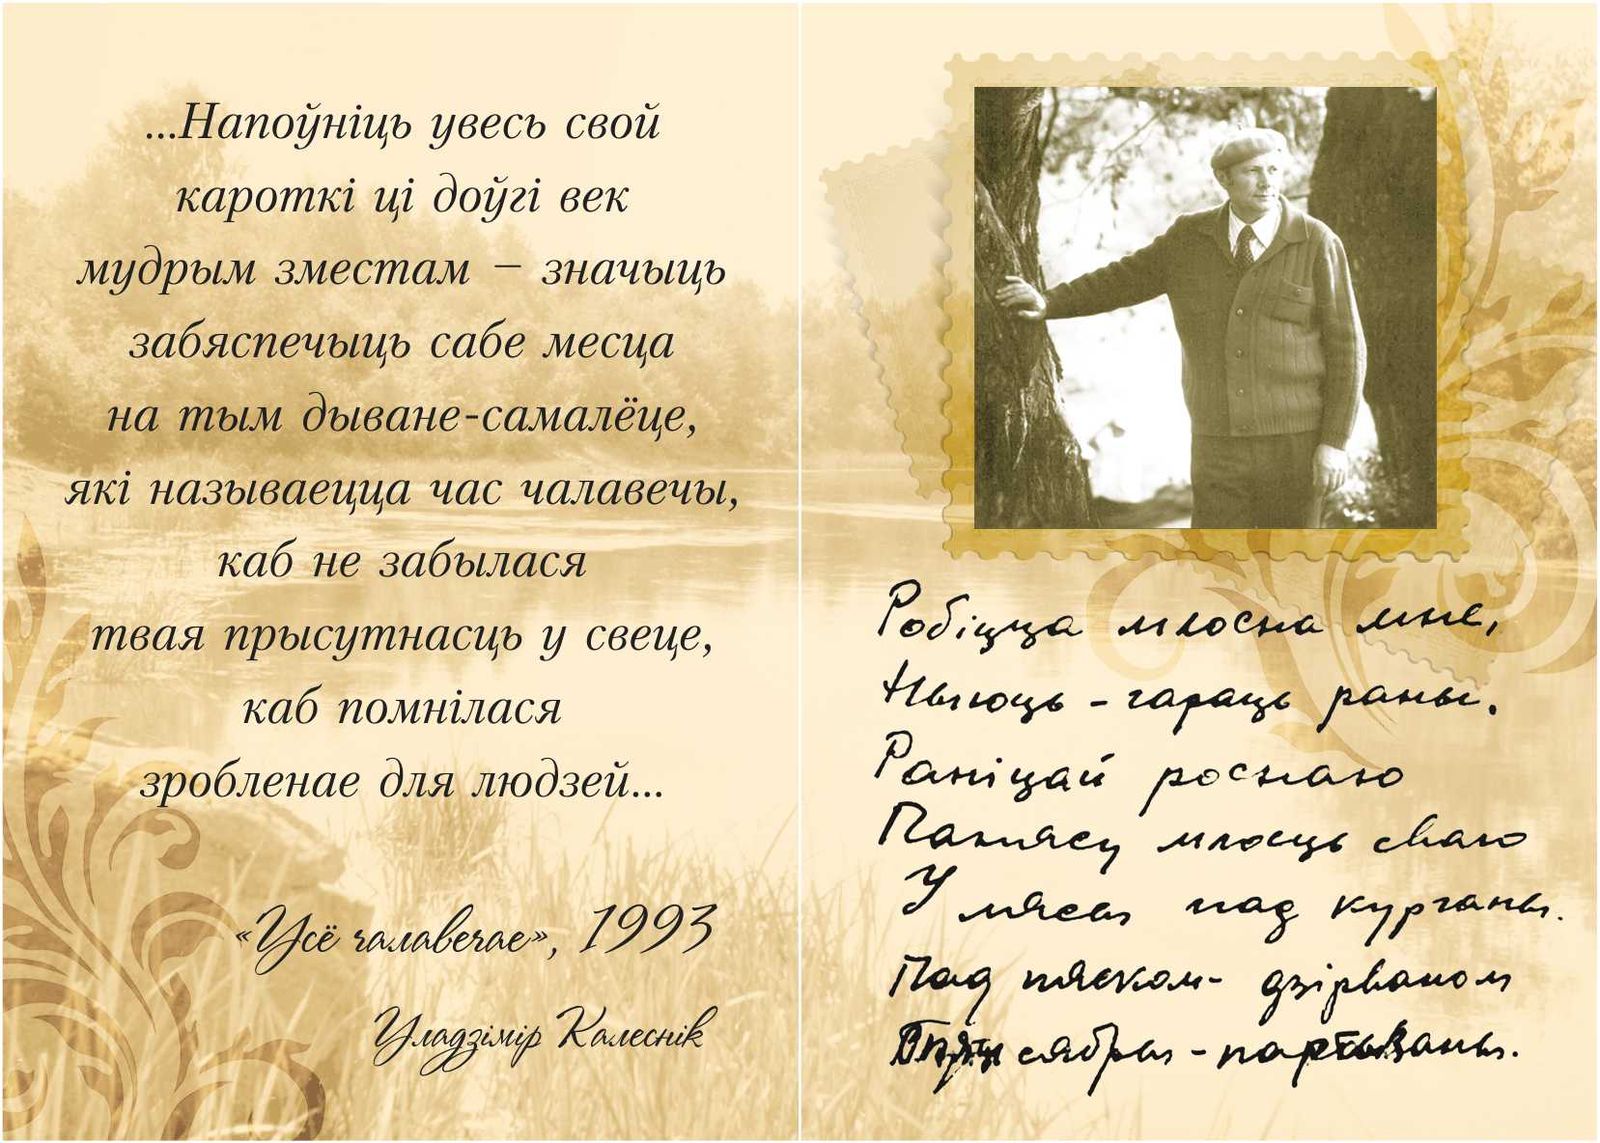 ...Напоўніць увесь свой
кароткі ці доўгі век
мудрым зместам – значыць
забяспечыць сабе месца
на тым дыване-самалёце,
які называецца час чалавечы,
каб не забылася
твая прысутнасць у свеце,
каб помнілася
зробленае для людзей...
«Усё чалавечае», 1993
Уладзімір Калеснік
Робіцца млосна мне,
Ныюць - гараць раны.
Раніцай роснаю
Панясу млосць сваю
У лясы над курганы.
Пад пяском - дзірваном
сябры - партызаны.